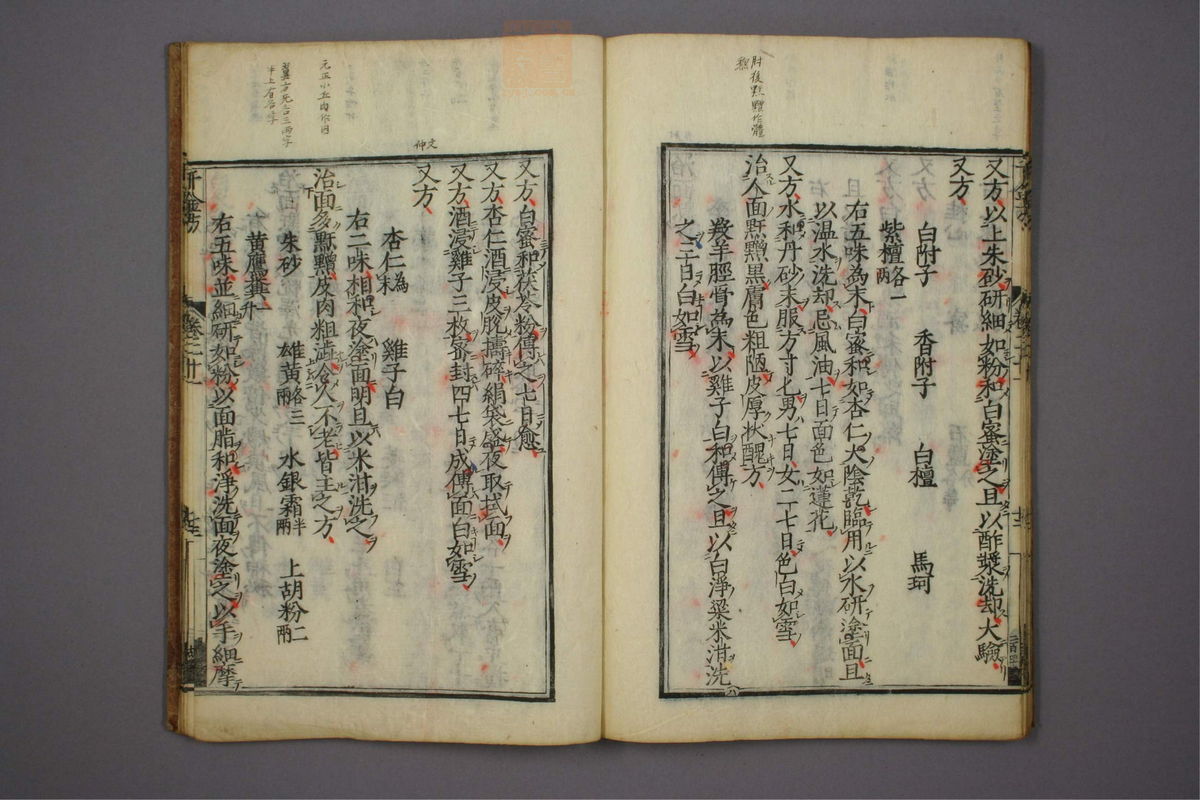 肘後䵟䵳作䵴
䵳
又方以上朱砂研細如粉和白蜜塗之旦以酢漿洗却大驗
又方
白附子 香附子 白檀 馬珂
紫檀各一兩
右五味為末白蜜和如杏仁大陰乾臨用以水研塗面旦
以温水洗却忌風油七日面色如蓮花
又方水和丹砂末服方寸匕男七日女二七日色白如雪
治人面䵟䵳黒膚色粗陋皮厚狀醜方
羖羊脛骨為末以雞子白和傅之旦以白淨粱米泔洗
之三日白如雪
文仲
又方白蜜和茯苓粉傅之七日愈
又方杏仁酒浸皮脫擣碎絹袋盛夜取拭面
又方酒浸雞子三枚蜜封四七日成傅面白如雪
又方
杏仁為末 雞子白
右二味相和夜塗面明旦以米泔洗之
治面多䵟䵳皮肉粗澁令人不老皆主之方
朱砂 雄黃各三兩 水銀霜半兩 上胡粉二兩
黃鷹糞一升
右五味並細研如粉以面脂和淨洗面夜塗之以手細摩
千金方
卷之廿一